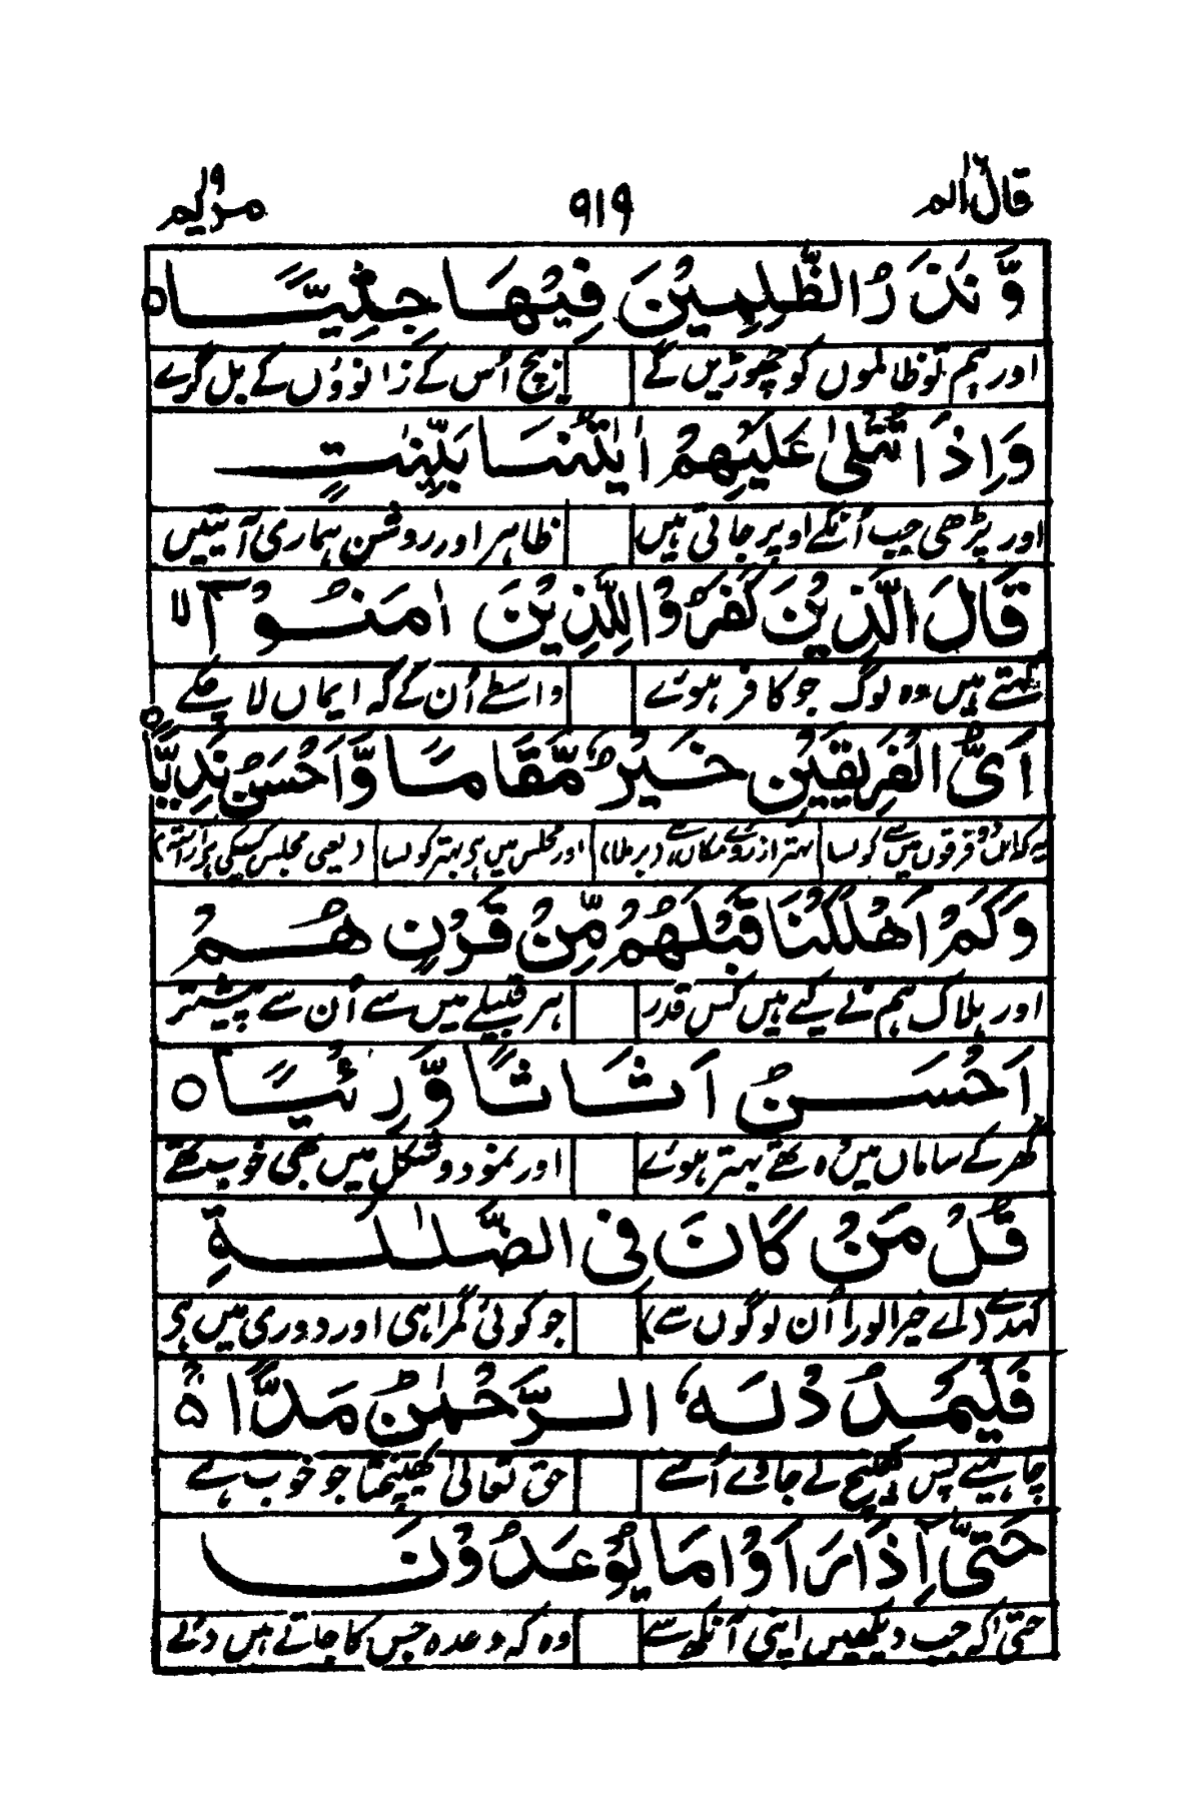 قال الم ١٦ ٩١٩ مریم ١٩
وَّنَذَرُ الظّٰلِمِیْنَ فِیْهَا جِثِیًّا ○
اور ہم تو ظالموں کو چھوڑیں گے بیچ اُس کے زانوؤں کے بل گرے
وَاِذَا تُتْلٰى عَلَیْهِمْ اٰیٰتُنَا بَیِّنٰتٍ
اور پڑھی جب اُنکے اوپر جاتی ہیں ظاہر اور روشن ہماری آیتیں
قَالَ الَّذِیْنَ كَفَرُوْا لِلَّذِیْنَ اٰمَنُوْۤا ۙ
کہتے ہیں وہ لوگ جو کافر ہوئے واسطے اُن کے کہ ایماں لا چکے
اَیُّ الْفَرِیْقَیْنِ خَیْرٌ مَّقَامًا وَّاَحْسَنُ نَدِیًّا ○
دو فرقوں میں سے کونسا بہتر ازروئے مکاں، (برملا) اور مجلس میں ہے بہتر کونسا (یعنی مجلس کسکی ہے آراستہ)
وَكَمْ اَهْلَكْنَا قَبْلَهُمْ مِّنْ قَرْنٍ هُمْ
اور ہلاک ہم نے کیے ہیں کس قدر ہر قبیلے میں سے اُن سے پیشتر
اَحْسَنُ اَثَاثًا وَّرِئْیًا ○
گھر کے ساماں میں وہ تھے بہتر ہوئے اور نمود و شکل میں بھی خوب تھے
قُلْ مَنْ كَانَ فِی الضَّلٰلَةِ
کہدے (اے خیرالورا اُن لوگوں سے) جو کوئی گمراہی اور دوری میں ہے
فَلْیَمْدُدْ لَهُ الرَّحْمٰنُ مَدًّا ۚ۵
چاہیئے پس کھینچ لے جاوے اُسے حق تعالیٰ کھینچنا جو خوب ہے
حَتّٰۤى اِذَا رَاَوْا مَا یُوْعَدُوْنَ
حتیٰ کہ جب دیکھیں اپنی آنکھ سے وہ کہ وعدہ جس کا جاتے ہیں دئے